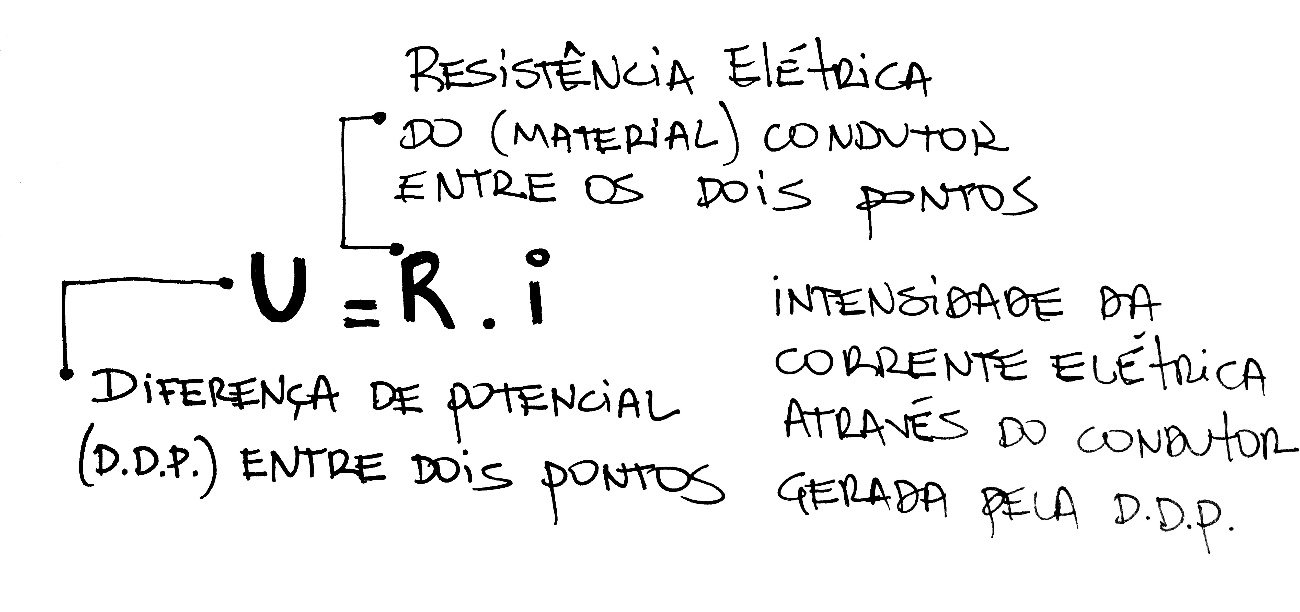 RESISTÊNCIA ELÉTRICA
DO (MATERIAL) CONDUTOR
ENTRE OS DOIS PONTOS
U = R . i
DIFERENÇA DE POTENCIAL
(D.D.P.) ENTRE DOIS PONTOS
INTENSIDADE DA
CORRENTE ELÉTRICA
ATRAVÉS DO CONDUTOR
GERADA PELA D.D.P.